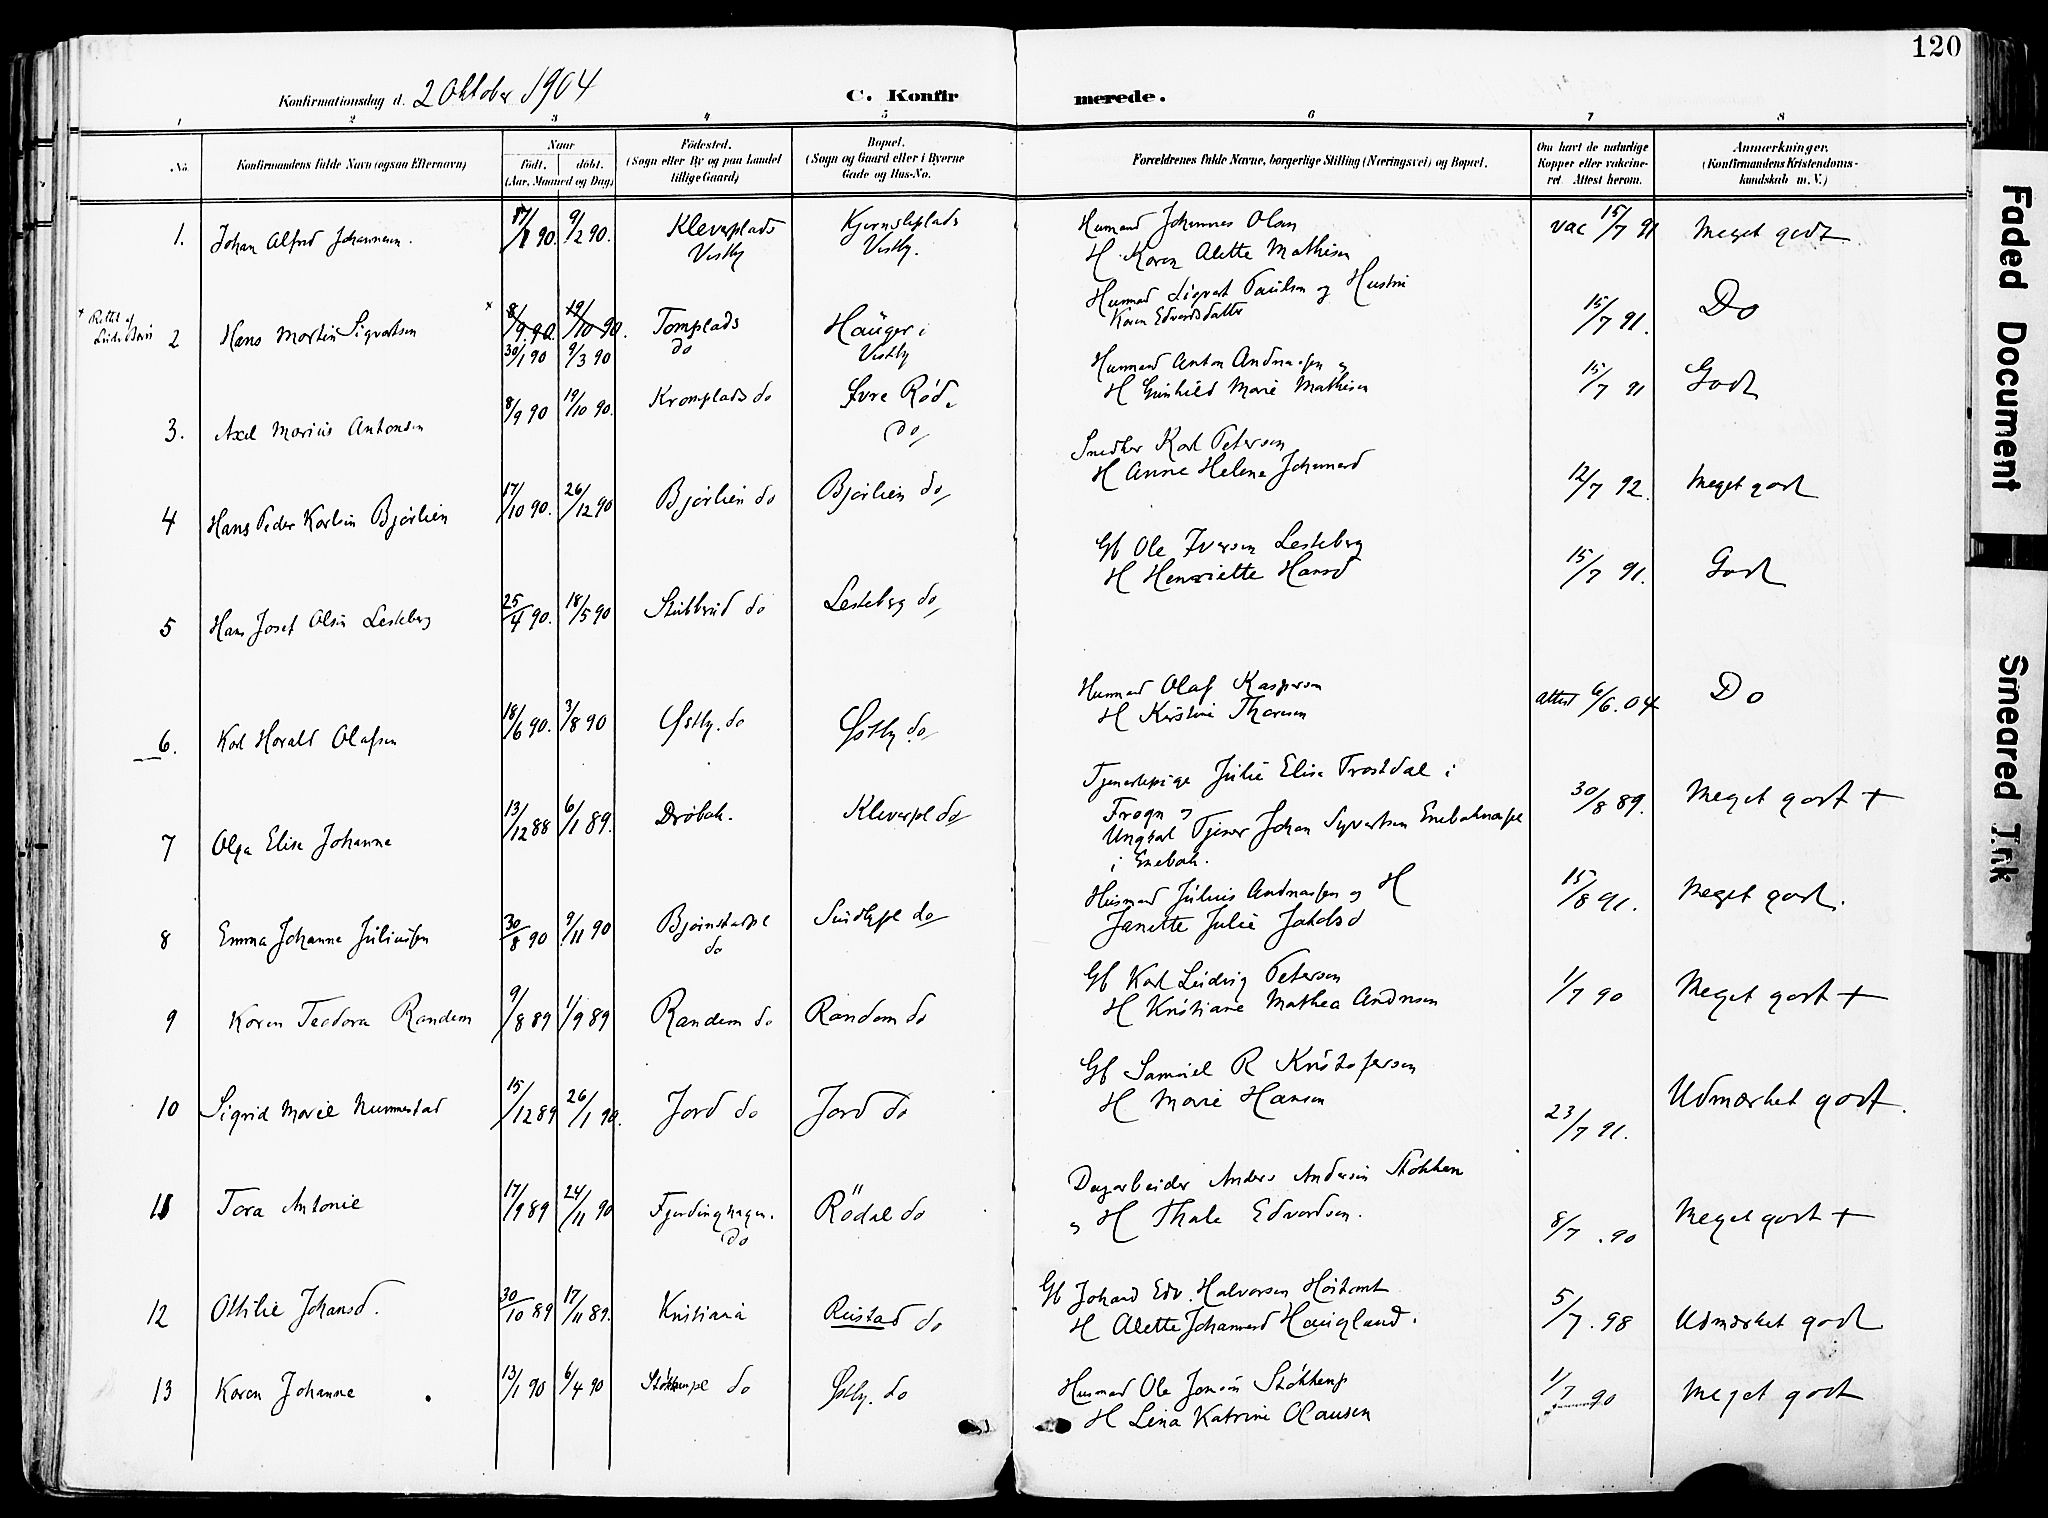 120
Konfirmationsdag d. 2 Oktober 1904
C. Konfirmerede.
1 2 3 4 5 6 7 8
No.
Konfirmandens fulde Navn (ogsaa Efternavn)
Naar
født. døbt.
(Aar, Maaned og Dag)
Fødested.
(Sogn eller By og paa Landet
tillige Gaard)
Bopæl.
(Sogn og Gaard eller i Byerne
Gade og Hus-No.
Forældrenes fulde Navne, borgerlige Stilling (Næringsvei) og Bopæl.
Om havt de naturlige
Kopper eller vakcine-
ret. Attest herom.
Anmærkninger.
(Konfirmandens Kristendoms-
kundskab m. V.)
1. Johan Alfred Johannesen. /1 90. 9/2 90. Kleverplads
Vestby
Kjernsleplads
Vestby.
Husmand Johannes Olsen
H. Karen Alette Mathisen
vac 15/7 91 Meget godt
2 Hans Martin Sigvartsen × 8/9 90. 19/10 90.
30/1 90 9/3 90
Tomplads
do
Hauger i
Vestby
Husmand Sigvart Paulsen og Hustru
Karen Edvardsdatter
15/7 91. Do
3. Axel Marius Antonsen 8/9 90 19/10 90. Kromplads do Øvre Rød
do
Husmand Anton Andreassen og
H Gunhild Marie Mathisen
15/7 91 Godt
4 Hans Peder Karlsen Bjørlien 17/10 90. 26/12 90 Bjørlien do Bjørlien do
Snedker Karl Petersen
H Anne Helene Johannesd
12/7 92. Meget godt
5 Hans Josef Olsen Lesteberg 25/4 90. 18/5 90 Stubberud do Lesteberg do
Gb Ole Iversen Lesteberg
H Henriette Hansd
15/7 91. Godt
6. Karl Harald Olafsen 18/6 90. 3/8 90 Østby. do Østby do
Husmand Olaf Kaspersen
H Kirstine Thoresen
attest 6/6. 04 Do
7 Olga Elise Johanne 13/12 88 6/1 89. Drøbak. Kleverpl do
Tjenestepige Julie Elise Trostdal i
Frogn og
Ungkarl Tjener Johan Syvertsen Enebaknespl
i Enebak.
30/8 89. Meget godt +
8 Emma Johanne Juliussen 30/8 90 9/11 90 Bjørnstadpl
do
Sundbypl do
Husmand Julius Andreassen og H
Janette Julie Jakobsd
15/8 91. Meget godt.
9 Karen Teodora Randem 9/8 89 1/9 89 Randem do Randem do
Gb Karl Ludvig Petersen
H Kristiane Mathea Andersen
1/7 90 Meget godt +
10 Sigrid Marie Nummestad 15/12 89 26/1 90. Jord do Jord do
Gb Samuel R Kristofersen
H Marie Hansen
23/7 91. Udmærket godt.
11 Tora Antonie 17/9 89 24/11 90 Fjerdinghagen.
do
Rødal do
Dagarbeider Anders Andersen Stokken
og H Thale Edvardsen.
8/7 . 90 Meget godt +
12 Ottilie Johansd. 30/10 89 17/11 89. Kristiania Rustad do
Gb Johard Edv. Halvorsen Høitomt
H Alette Johannesd Haugland.
5/7. 98 Udmærket godt
13 Karen Johanne 13/1 90 6/4 90 Støkkenpl do Østby. do
Husmand Ole Jonsen Støkkenp
H Lina Katrine Olausen
1/7 90 Meget godt
Faded Document
Smeared Ink